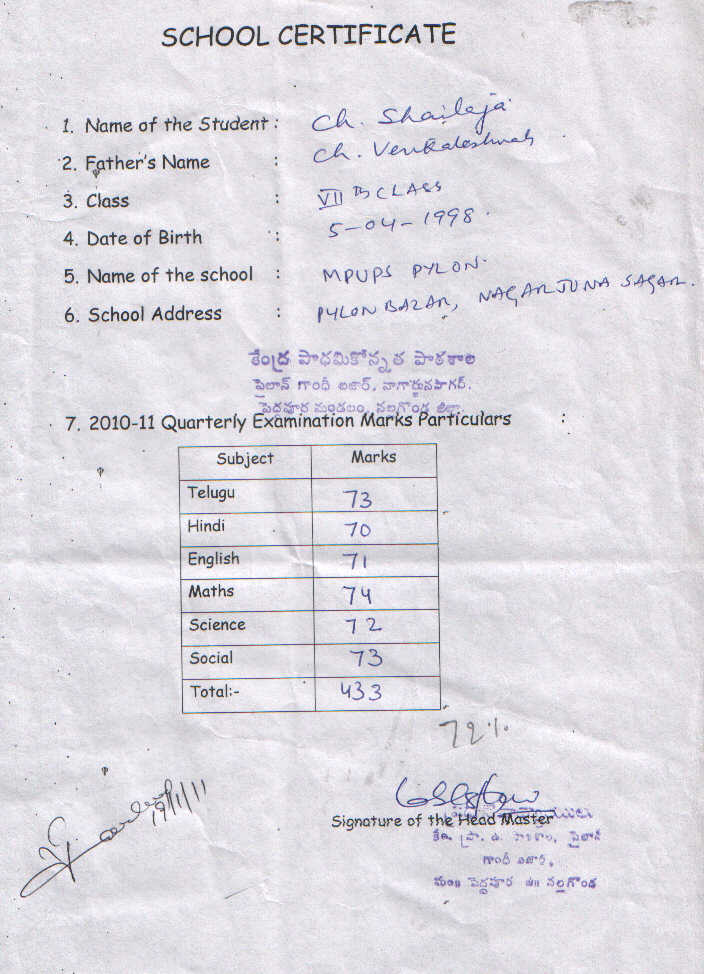 SCHOOL CERTIFICATE
1. Name of the Student : Ch. Shailaja
2. Father's Name : Ch. Venkateshwah
3. Class : VII B CLASS
4. Date of Birth : 5-04-1998.
5. Name of the school : MPUPS PYLON.
6. School Address : PYLON BAZAR, NAGARJUNA SAGAR.
కేంద్ర పాధమికోన్నత పాఠశాల
పైలాన్ గాంధీ బజార్, నాగార్జునసాగర్.
పెద్దవూర మండలం, నల్లగొండ జిల్లా.
7. 2010-11 Quarterly Examination Marks Particulars :
Subject Marks
Telugu 73
Hindi 70
English 71
Maths 74
Science 72
Social 73
Total:- 433
72%
19/1/11
Signature of the Head Master
కేం. ప్రా. ఉ. పాఠశాల, పైలాన్
గాంధీ బజార్,
మం॥ పెద్దవూర జి॥ నల్లగొండ